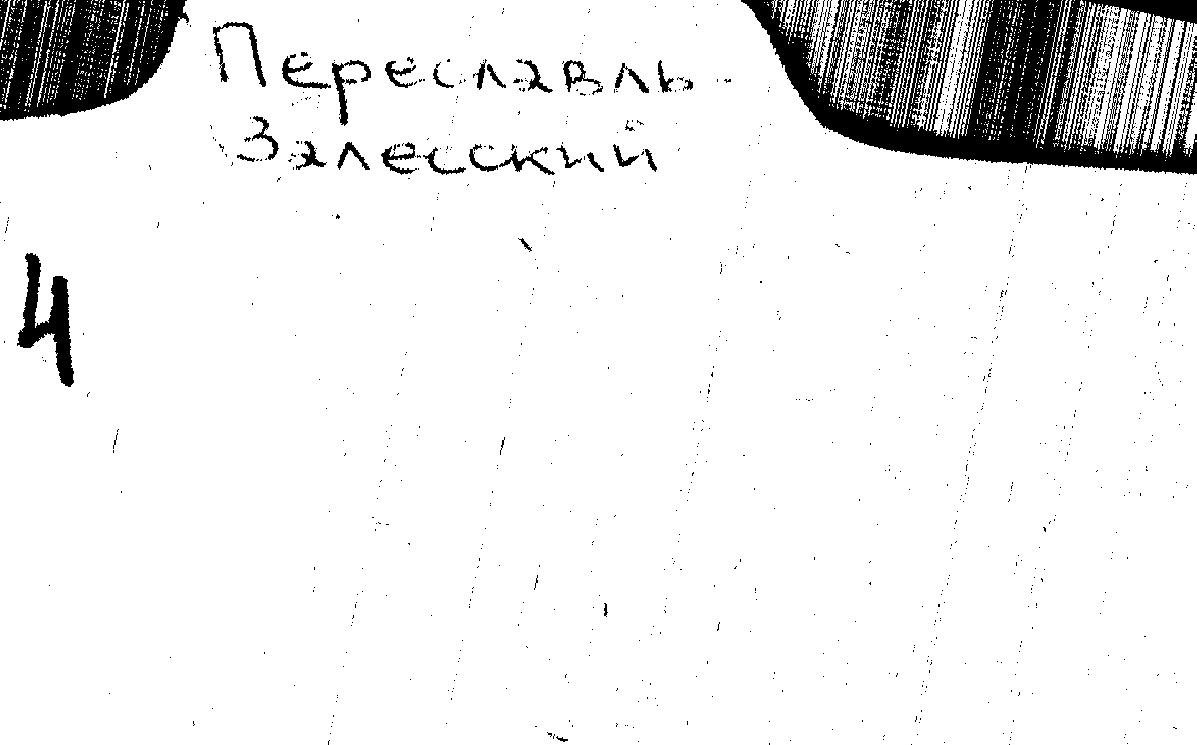 Переславль -
Залесский
4